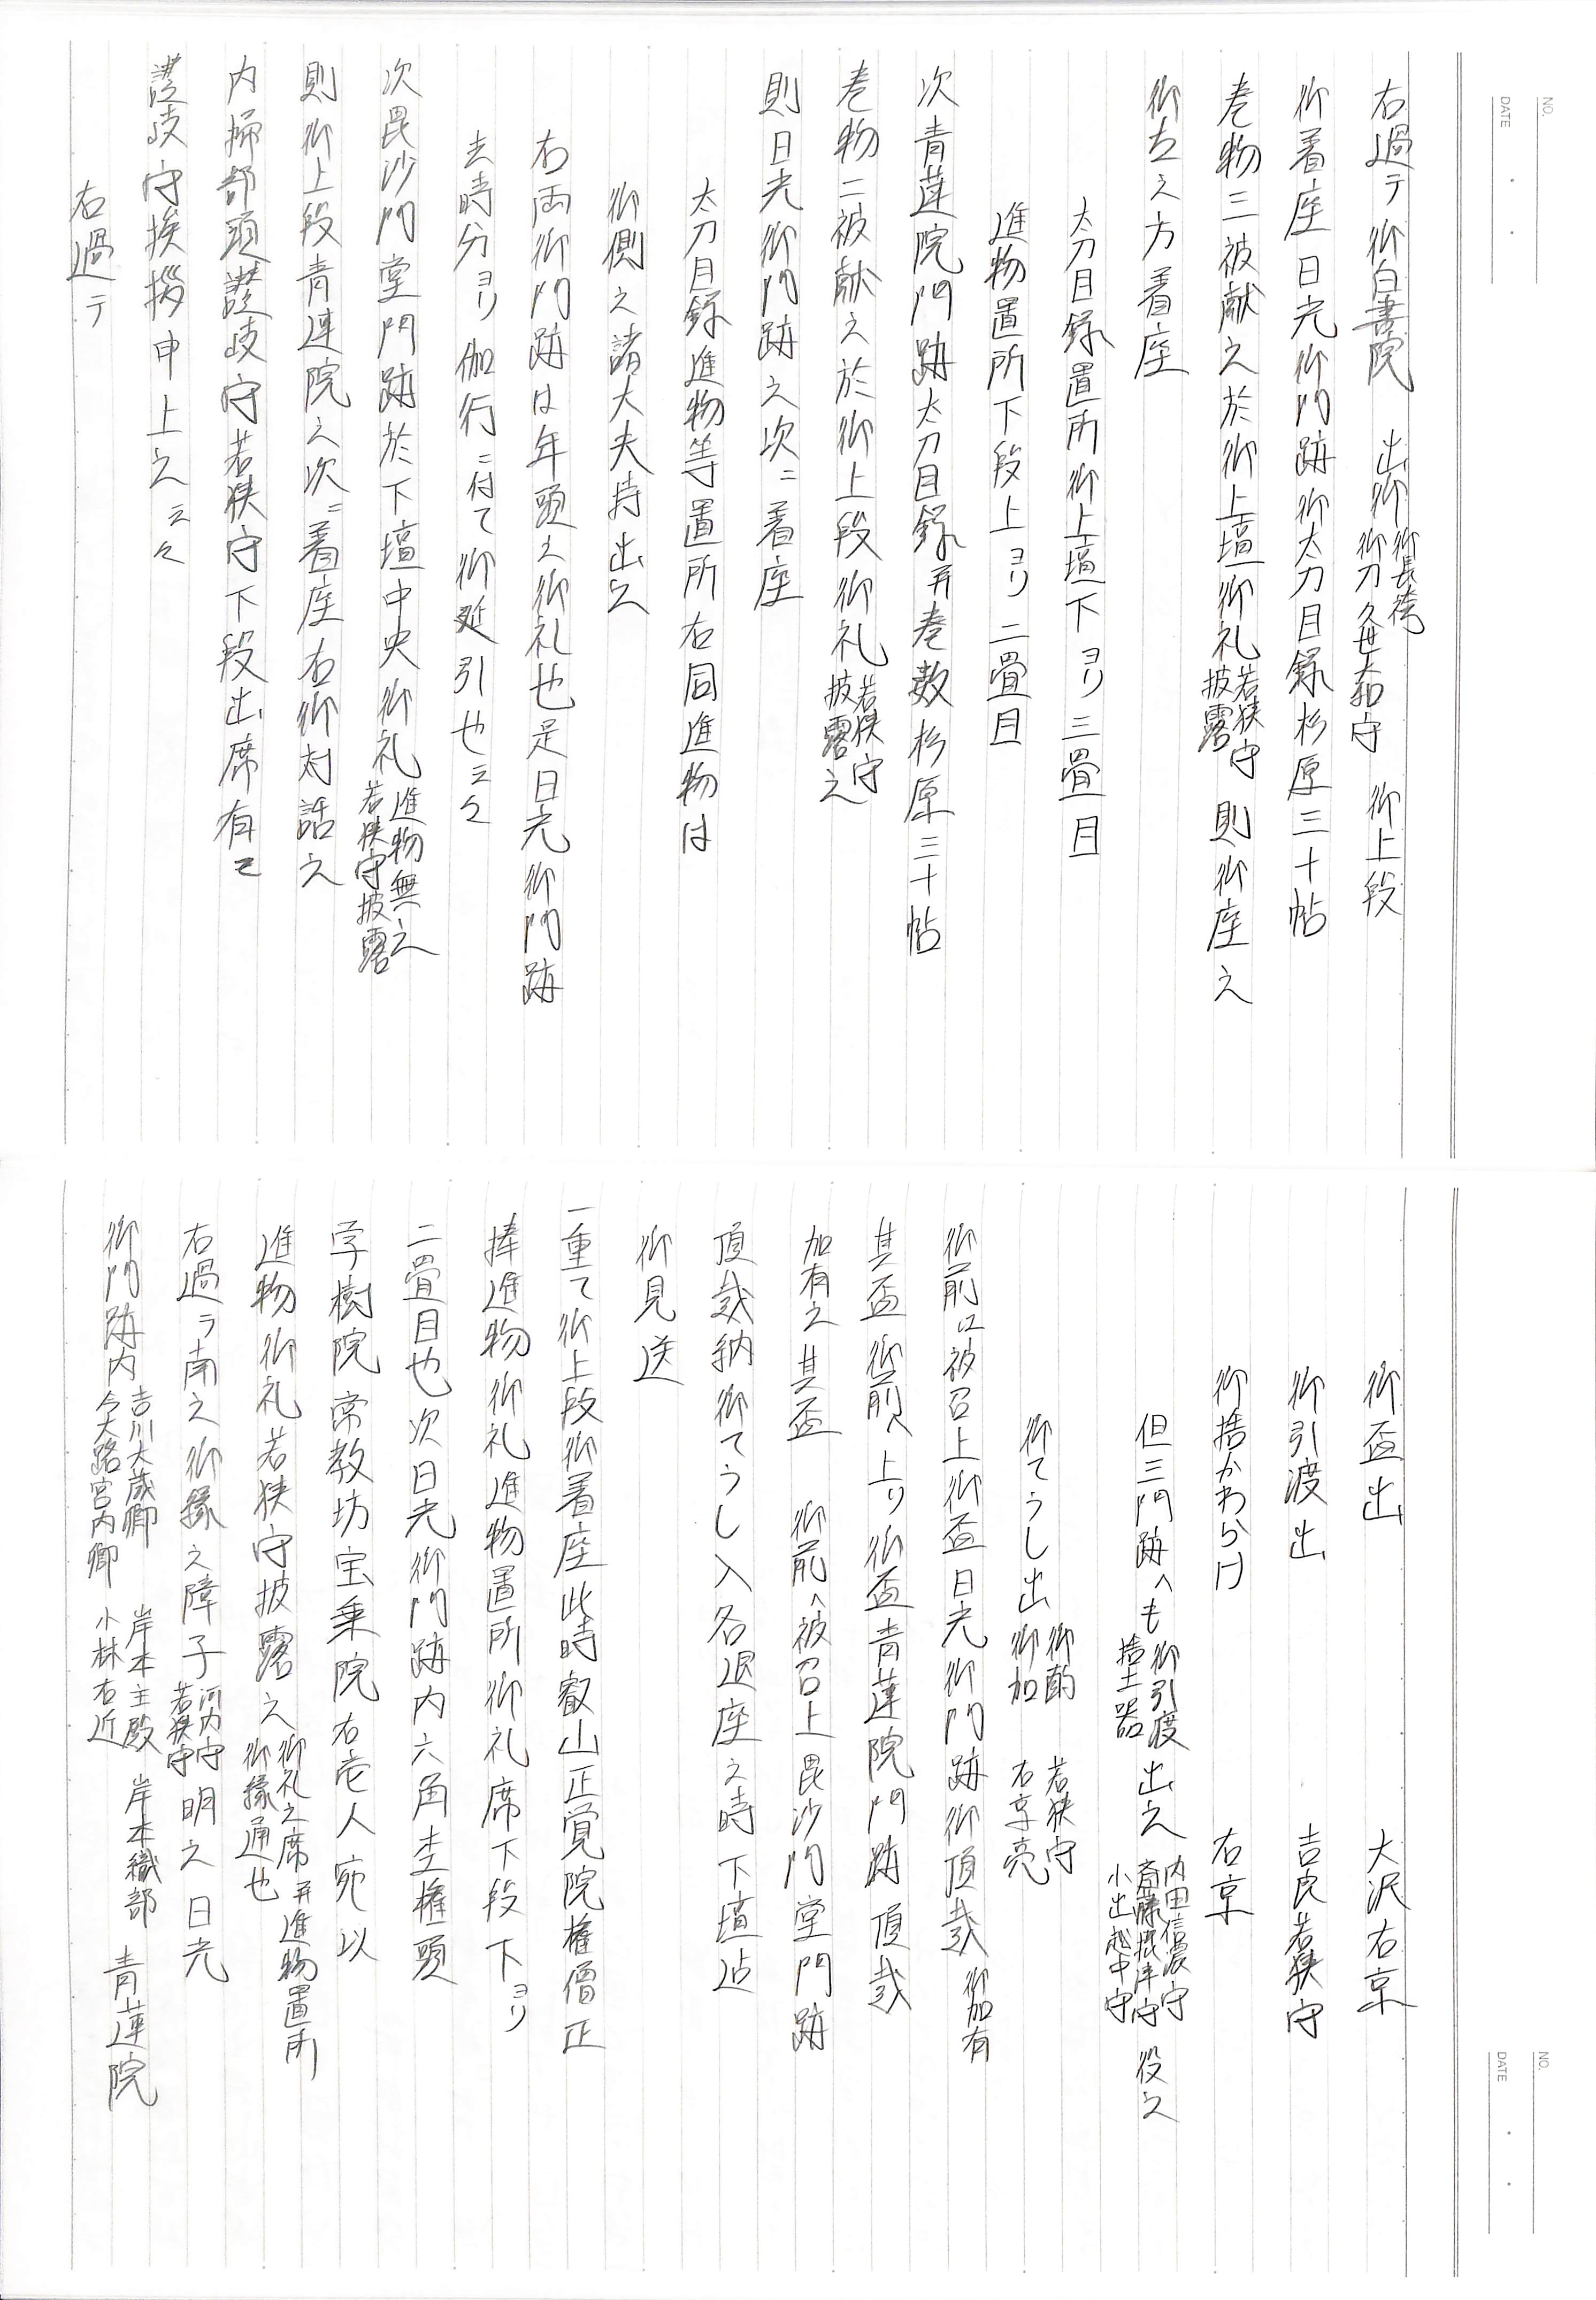 NO.
DATE
右過テ御白書院 出御 御長袴 御刀久世大和守 御上段
御着座日光御門跡御太刀目録杉原三十帖
巻物三被献之於御上壇御礼 若狭守披露 則御座之
御左之方着座
太刀目録置所御上壇下ヨリ三畳目
進物置所下段上ヨリ二畳目
次青蓮院門跡太刀目録并巻数杉原三十帖
巻物二被献之於御上段御礼 若狭守披露之
則日光御門跡之次ニ着座
太刀目録進物等置所右同進物は
御側之諸大夫持出之
右両御門跡は年頭之御礼也是日光御門跡
去時分ヨリ伽行ニ付て御延引也云々
次毘沙門堂門跡於下壇中央御礼 進物無之 若狭守披露
則御上段青連院之次ニ着座右御対話之
内掃部頭讃岐守若狭守下段出席有之
讃岐守挨拶申上之云々
右過テ
NO.
DATE
御盃出 大沢右京
御引渡出 吉良若狭守
御捨かわらけ 右京
但三門跡へも 御引渡 捨土器 出之 内田信濃守 斎藤摂津守 小出越中守 役之
御てうし出 御酌 若狭守 御加 右京亮
御前江被召上御盃日光御門跡御頂戴 御加有
其盃御前へ上リ御盃青蓮院門跡頂戴
加有之其盃 御前へ被召上毘沙門堂門跡
頂戴納御てうし入各退座之時下壇迄
御見送
一重て御上段御着座此時叡山正覚院権僧正
捧進物御礼進物置所御礼席下段下ヨリ
二畳目也次日光御門跡内六角杢権頭
学樹院常教坊宝乗院右壱人宛以
進物御礼若狭守披露之 御礼之席并進物置所 御縁通也
右過テ南之御縁之障子 河内守 若狭守 明之日光
御門跡内 吉川大蔵卿 今大路宮内卿 岸本主殿 小林右近 岸本織部 青蓮院